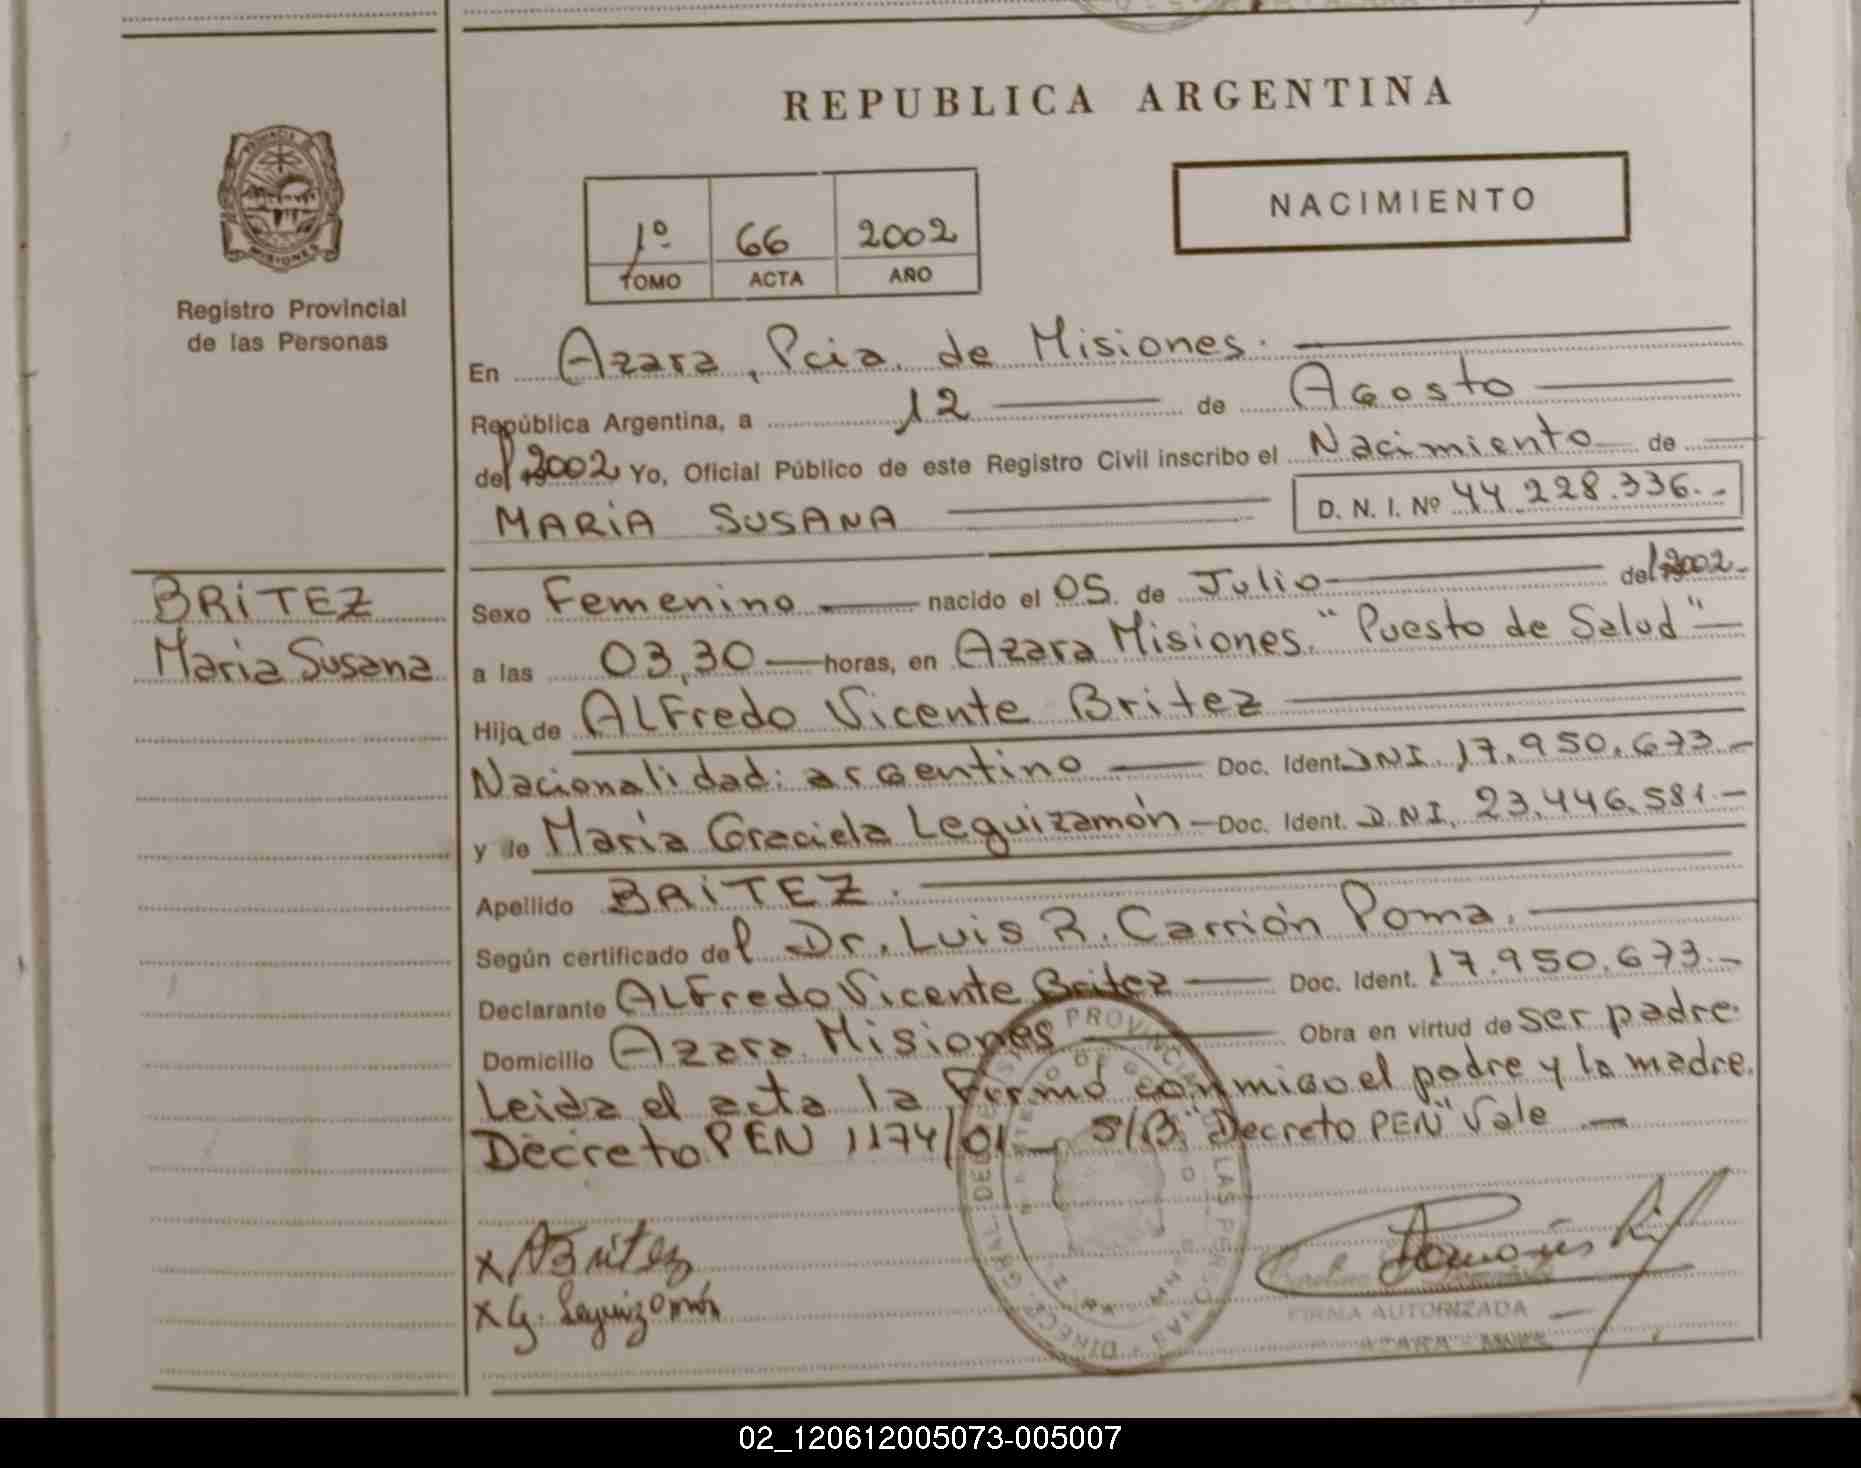 REPUBLICA ARGENTINA
PROVINCIA
MISIONES
Registro Provincial
de las Personas
1º 66 2002
TOMO ACTA AÑO
NACIMIENTO
En Azara, Pcia. de Misiones.
República Argentina, a 12 de Agosto
del 2002 Yo, Oficial Público de este Registro Civil inscribo el Nacimiento de
MARIA SUSANA D. N. I. Nº 44.228.336.-
BRITEZ
Maria Susana
Sexo Femenino nacido el 05 de Julio del 2002-
a las 03,30 horas, en Azara Misiones. "Puesto de Salud"
Hija de ALFredo Vicente Britez
Nacionalidad: argentino Doc. Ident. DNI. 17.950.673.-
y de Maria Graciela Leguizamón - Doc. Ident. DNI. 23.446.581.-
Apellido BRITEZ.
Según certificado del Dr. Luis R. Carrión Poma.
Declarante ALFredo Vicente Britez Doc. Ident. 17.950.673.-
Domicilio Azara Misiones Obra en virtud de ser padre.
Leida el acta la Firmó conmigo el padre y la madre.
Decreto PEN 1174/01 - S/B. "Decreto PEN" Vale -
x ABritez
x G. Leguizamón
PROVINCIAL DE LAS PERSONAS
FIRMA AUTORIZADA
02_120612005073-005007